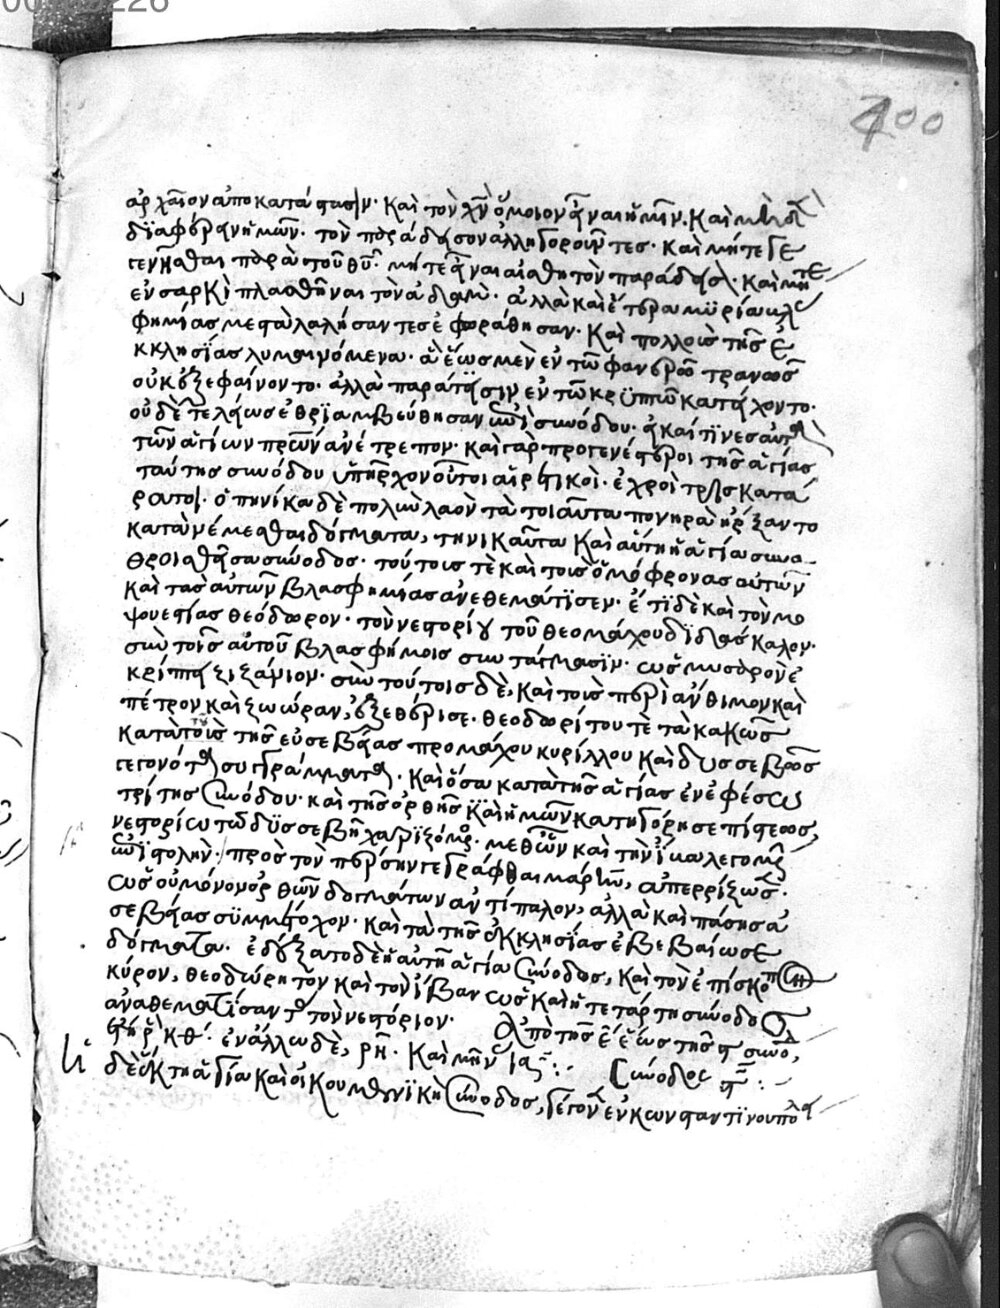 400
ἀρχαῖον ἀποκατάστασιν· καὶ τὸν χν ὅμοιον εἶναι ἡμῖν· καὶ
διαφέρειν ἡμῶν· τὸν παράδεισον ἀλληγοροῦντες· καὶ μήτε γε
γενῆσθαι παρὰ τοῦ θυ· μήτε εἶναι αἰσθητὸν παράδεισον· καὶ μήτε
ἐν σαρκὶ πλασθῆναι τὸν ἀδάμ· ἀλλὰ καὶ ἕτερα μυρία βλα
φημίας μεστὰ λαλήσαντες ἐφωράθησαν· καὶ πολλοῖς τῆς ἐ
κκλησίας λυμαινόμενα· ἃ ἕως μὲν ἐν τῶ φανερῶ τρανῶς
οὐκ ἐξεφαίνοντο· ἀλλὰ παρὰ τισὶν ἐν τῶ κρυπτῶ κατείχοντο·
οὐδὲ τελείως ἐθριαμβεύθησαν ὑπὸ συνόδου· εἰ καί τινες αὐτὰ
τῶν ἁγίων πρώην ἀνέτρεπον· καὶ γὰρ προγενέστεροι τῆς ἁγίας
ταύτης συνόδου ὑπῆρχον οὗτοι αἱρετικοὶ· ἐχθροὶ τρὶς κατά
ρατοι· ὁπηνίκα δὲ πολὺ λαὸν τὰ τοιαῦτα πονηρὰ ἤρξαντο
κατανέμεσθαι δόγματα, τηνικαῦτα καὶ αὕτη ἡ ἁγία συνα
θροισθεῖσα σύνοδος· τούτοις τὲ καὶ τοὺς ὁμόφρονας αὐτῶν
καὶ τὰς αὐτῶν βλασφημίας ἀνεθεμάτισεν· ἔτι δὲ καὶ τὸν μο
ψουεστίας θεόδωρον· τὸν νεστορίου τοῦ θεομάχου διδάσκαλον·
σὺν τοῖς αὐτοῦ βλασφήμοις συντάγμασιν· ὡς μυσαρὸν ἐ
κρίπτει ζιζάνιον· σὺν τούτοις δὲ, καὶ τοὺς περὶ ἄνθιμον καὶ
πέτρον καὶ ζωώραν, ἐξεθέρισε· θεοδωρίτου τὲ τὰ κακῶς
κατὰ τοῦ τῆς εὐσεβείας προμάχου κυρίλλου καὶ δυσσεβῶς
γεγονότα συγγράμματα· καὶ ὅσα κατὰ τῆς ἁγίας ἐν ἐφέσω
τρίτης συνόδου· καὶ τῆς ὀρθῆς καὶ ἡμῶν κατηγόρησε πίστεως,
νεστορίω τῶ δυσσεβῆ χαριζόμενος· μεθ' ὧν καὶ τὴν ἴβα λεγομένην
ἐπιστολὴν· πρὸς τὸν πέρσην γεγράφθαι μάριν, ἀπερρίζωσε·
ὡς οὐ μόνον ὀρθῶν δογμάτων ἀντίπαλον, ἀλλὰ καὶ πάσης ἀ
σεβείας συμμέτοχον· καὶ τὰ τῆς ἐκκλησίας ἐβεβαίωσε
δόγματα· ἐδέξατο δὲ ἡ αὐτὴ ἁγία σύνοδος, καὶ τὸν ἐπίσκοπον
κύρον, θεοδώρητον καὶ τὸν ἴβαν ὡς καὶ ἡ τετάρτη σύνοδος
ἀναθεματίσαντας τὸν νεστόριον· ἀπὸ τῆς ε ἕως τῆς ϛ συνόδου,
ἔτη ρκθ· ἐν ἄλλω δὲ, ρη· καὶ μῆνες ια :· Σύνοδος ϛ :·
δὲ ἕκτη ἁγία καὶ οἰκουμενικὴ σύνοδος, γέγονεν ἐν κωνσταντινουπόλει